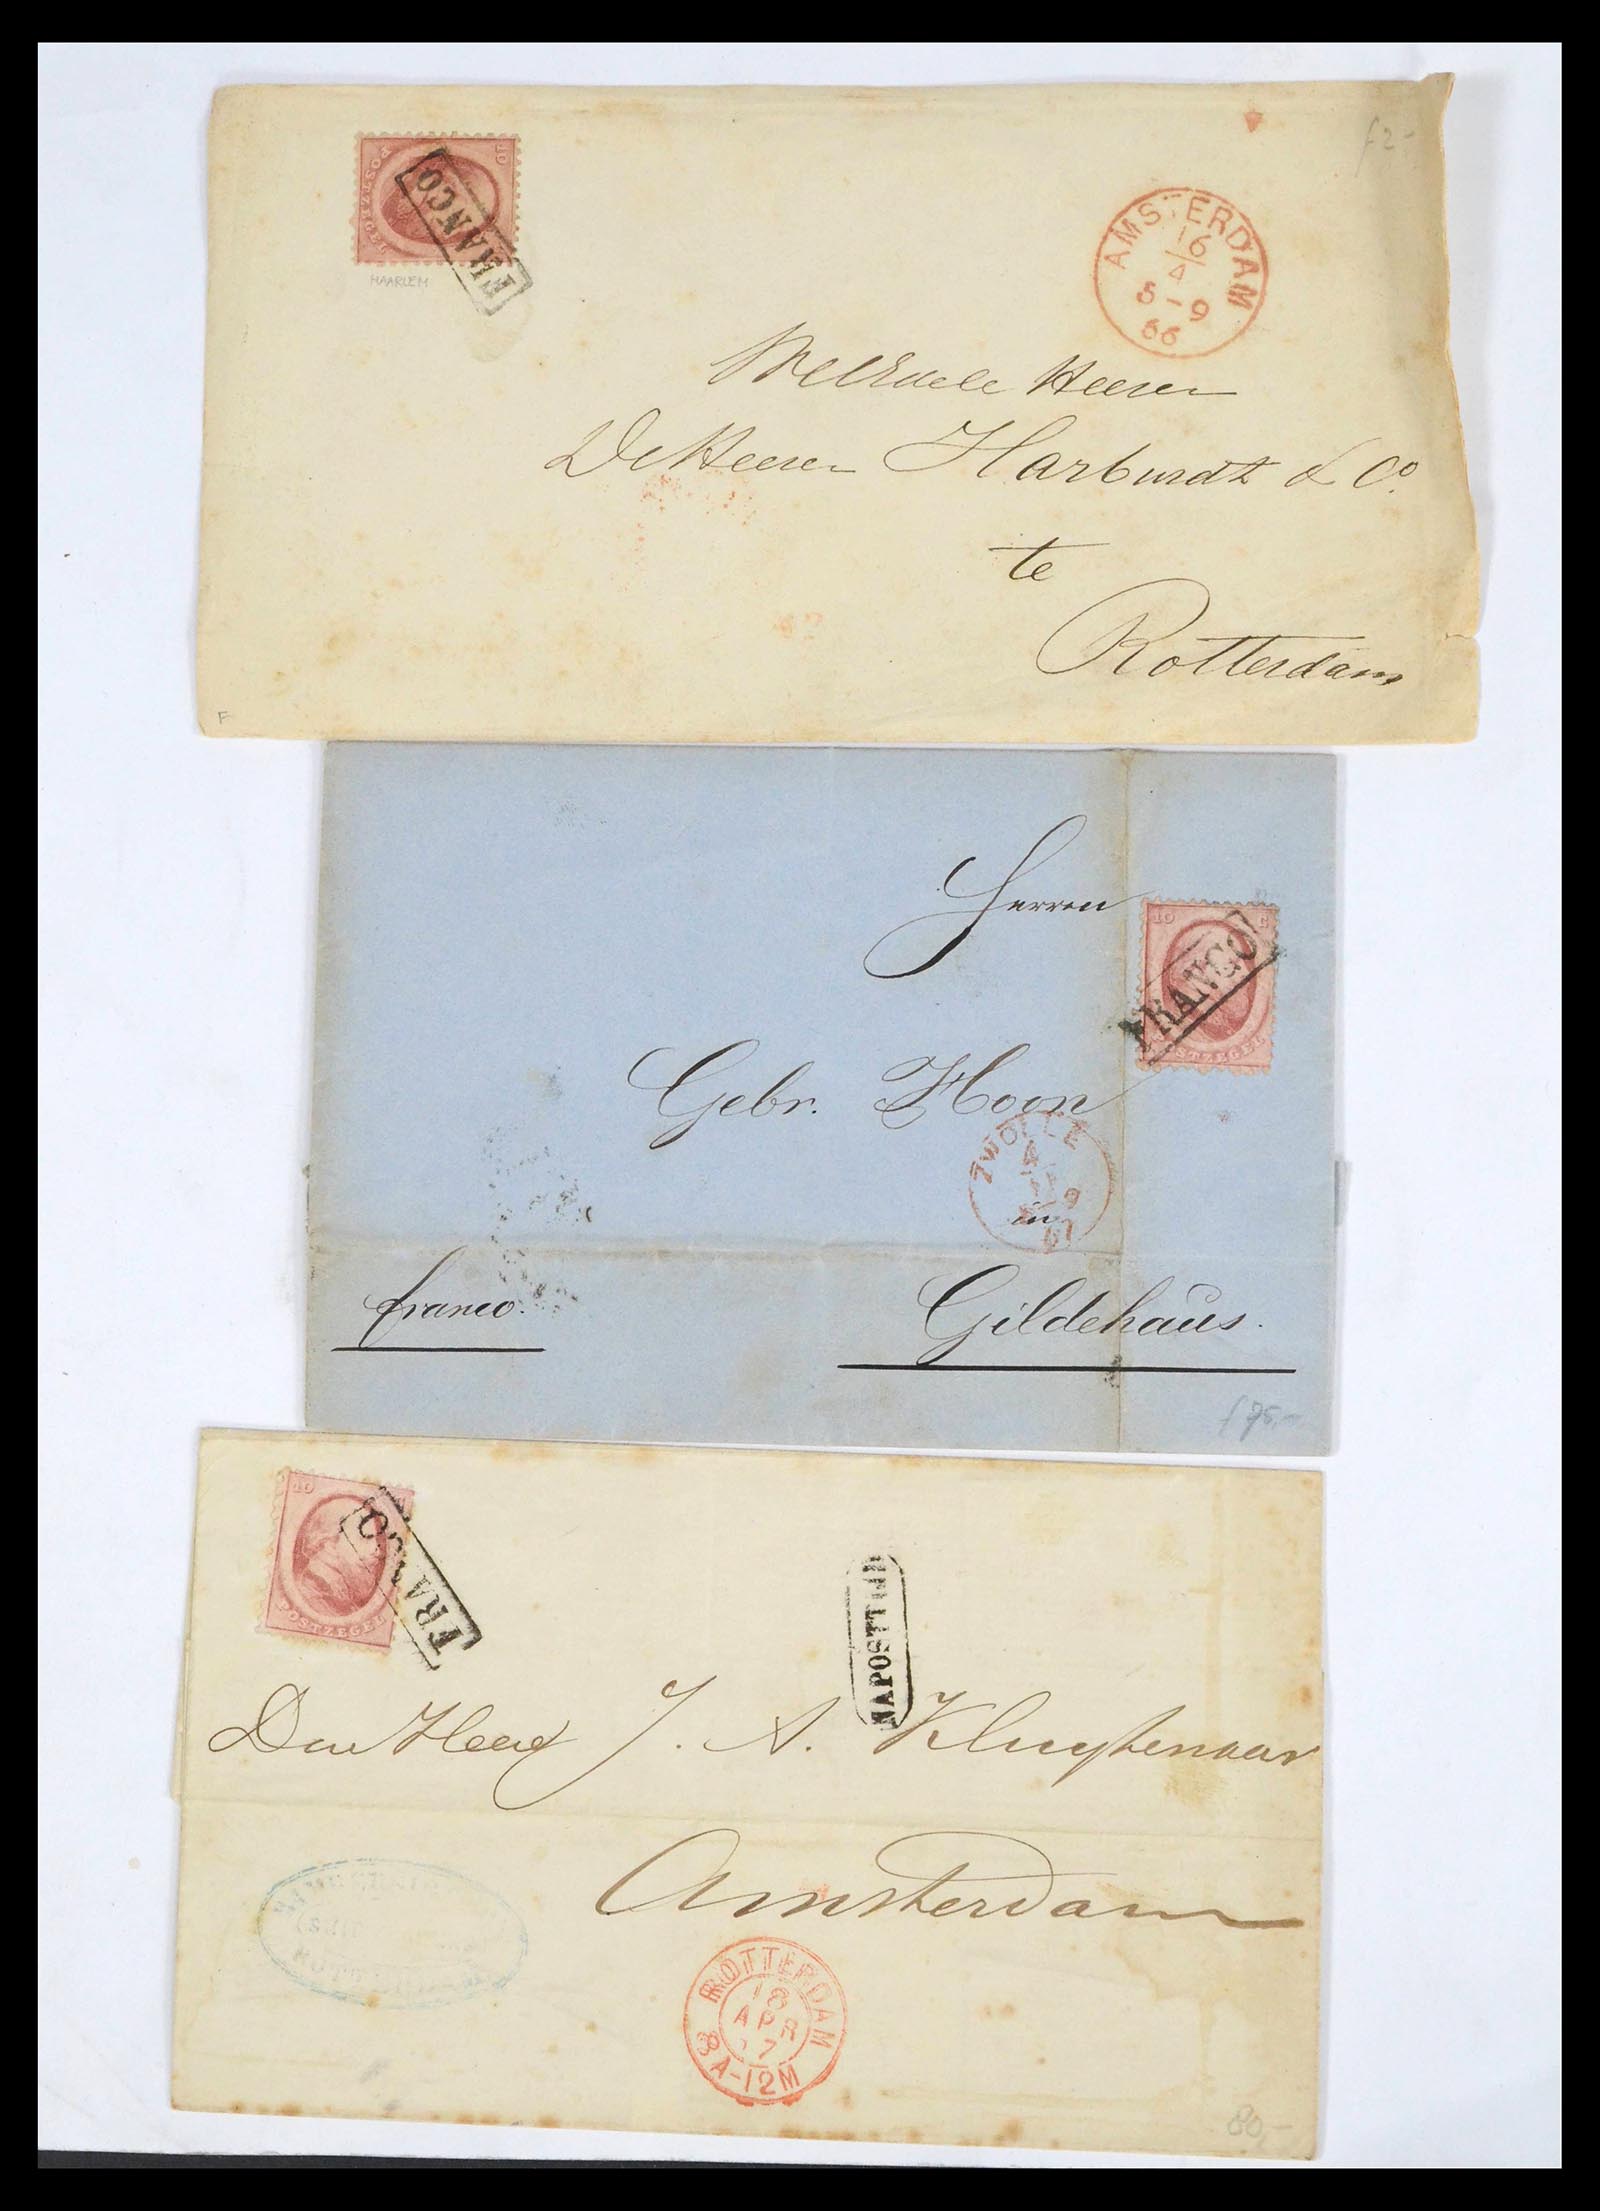 10
POSTZEGEL
FRANCO
HAARLEM
f 2-
AMSTERDAM
16
4
5-9
66
Heeren
De Heeren Harburdt & Co.
te
Rotterdam
F
Herren
10 C
FRANCO
POSTZEGEL
Gebr. Hoon
ZWOLLE
4
9
67
in
franco.
Gildehaus.
f 75,-
10
FRANCO
POSTZEGEL
NAPOSTTIJD
Den Heer J. A. Kluytenaar
Amsterdam
ROTTERDAM
18
APR
7
8A-12M
80,-